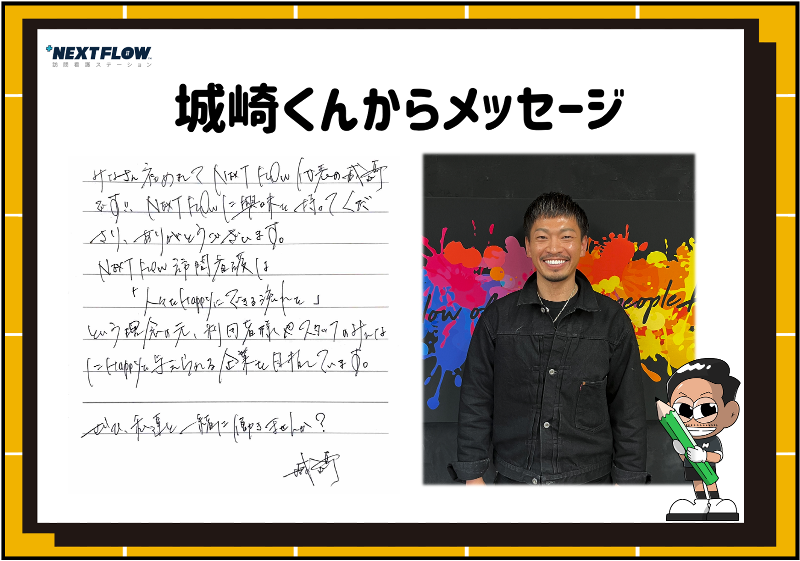 NEXTFLOW
訪問看護ステーション
城崎くんからメッセージ
みなさん改めまして NEXT FLOW 代表の城崎
です!! NEXT FLOWに興味を持ってくだ
さり、ありがとうございます。
NEXT FLOW 訪問看護は
「人をHappyにできる流れを」
という理念の元、利用者様やスタッフのみんな
にHappyを与えられる企業を目指しています。
ぜひ、私達と一緒に働きませんか?
城崎
low of
people